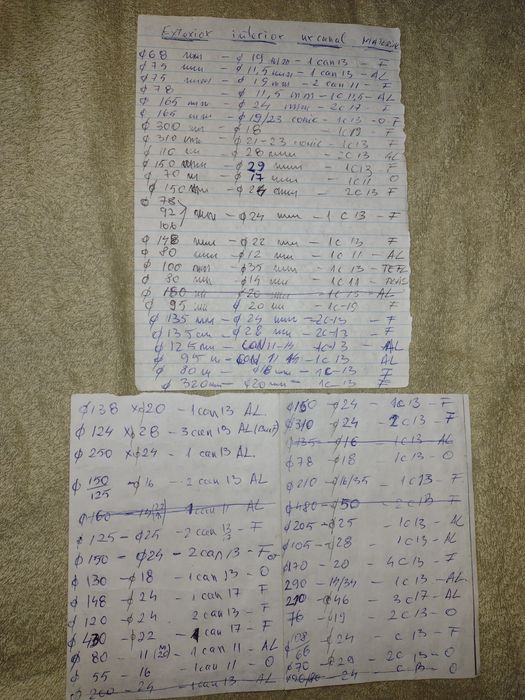 Exterior interior nr canal MATERIAL
φ 68 mm - φ 19 mm - 1 can 13 - F
φ 75 mm - φ 11,5 mm - 1 can 13 - AL
φ 75 mm - φ 19 mm - 2 can 11 - F
φ 78 - φ 11,5 mm - 1c 11,5 - AL
φ 165 mm - φ 24 mm - 2c 17 - F
φ 165 mm - φ 19/23 conic - 1c 13 - O F
φ 300 mm - φ 18 - 1c 19 F
φ 310 mm - φ 21-23 conic - 1c 13 F
φ 110 m - φ 28 mm - 2c 13
φ 150 mm - φ 29 mm - 1c 13 F
φ 70 m - φ 17 mm - 1c 11 O
φ 150 mm - φ 24 mm 2c 13 F
φ 78
92 mm - φ 24 mm - 1 c 13 - F
106
φ 148 mm - φ 22 mm - 1c 13 F
φ 80 mm - φ 12 mm - 1c 11 - AL
φ 100 mm - φ 35 mm - 1c 13 - TEFL
φ 80 mm - φ 14 mm - 1c 11
φ 180 m φ 20 mm - 1c 13 - AL
φ 95 m φ 20 m - 1c-19 F
φ 135 mm - φ 24 mm - 2c-13 - F
φ 135 cm - φ 28 mm - 2c-13 - F
φ 125 m - con 11-14 1c-13 - AL
φ 95 m - con 11 14 - 1c 13 AL
φ 80 m - φ 16 mm - 1c-13 F
φ 320 m - φ 20 mm - 1c 13 F
φ 138 x φ 20 - 1 can 13 AL
φ 124 x φ 28 - 3 can 13 AL
φ 250 x φ 24 - 1 can 13 AL
φ 150/125 - φ 16 - 2 can 13 AL
φ 160 - 1 can 11 AL
φ 125 - φ 25 - 2 can 13 - F
φ 150 - φ 24 - 2 can 13 - F
φ 130 - φ 18 - 1 can 13 - O
φ 148 - φ 24 - 1 can 17 F
φ 120 - φ 24 2 can 13 - F
φ 430 - φ 22 - 1 can 17 - F
φ 80 - 11 - 1 can 11 - AL
φ 55 - 16 - 1 can 11 - O
φ 200 - 24 - 1 can 13 AL
φ 160 - φ 24 - 1c 13 - F
φ 310 - φ 24 - 2c 13 - F
φ 135 - φ 16 - 1c 13 - AL
φ 78 - φ 18 - 1c 13 - O
φ 210 - φ 16/35 - 1c 13 - F
φ 480 - φ 50 - 2c 13 F
φ 205 - φ 25 - 1c 13 - AL
φ 105 - φ 28 - 1c 13 - AL
φ 170 - 20 - 4c 13 - F
290 - 14/34 - 1c 13 - AL
210 - φ 46 - 3c 17 - AL
76 - φ 19 - 2c 13 - O
φ 108 - φ 24 - c 13 - F
φ 66
φ 70 - φ 29 - 2c 13 - O
- 24 - c 13 - O